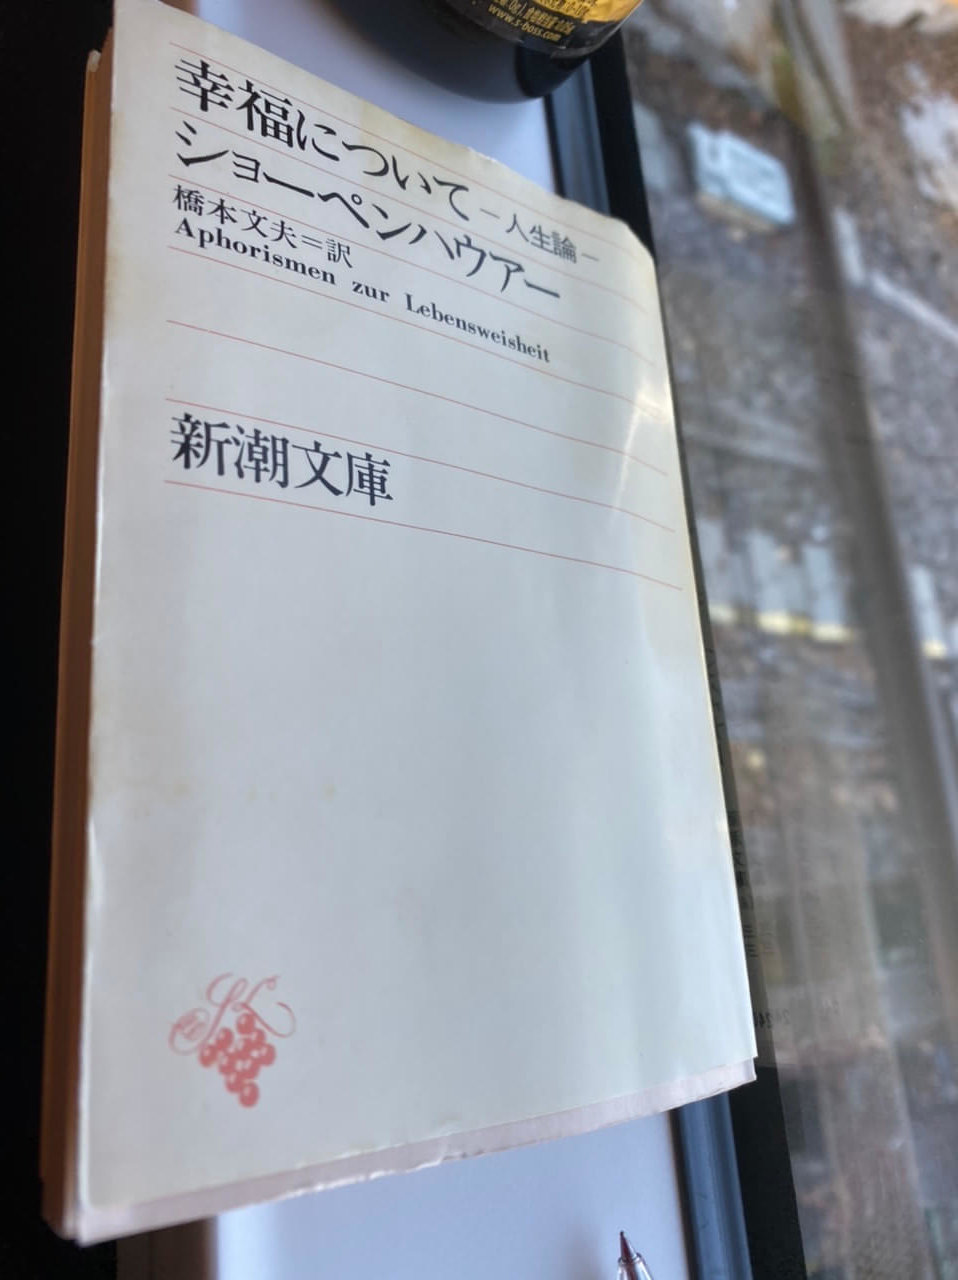 www.s-boss.com
幸福について ─人生論─
ショーペンハウアー
橋本文夫=訳
Aphorismen zur Lebensweisheit
新潮文庫